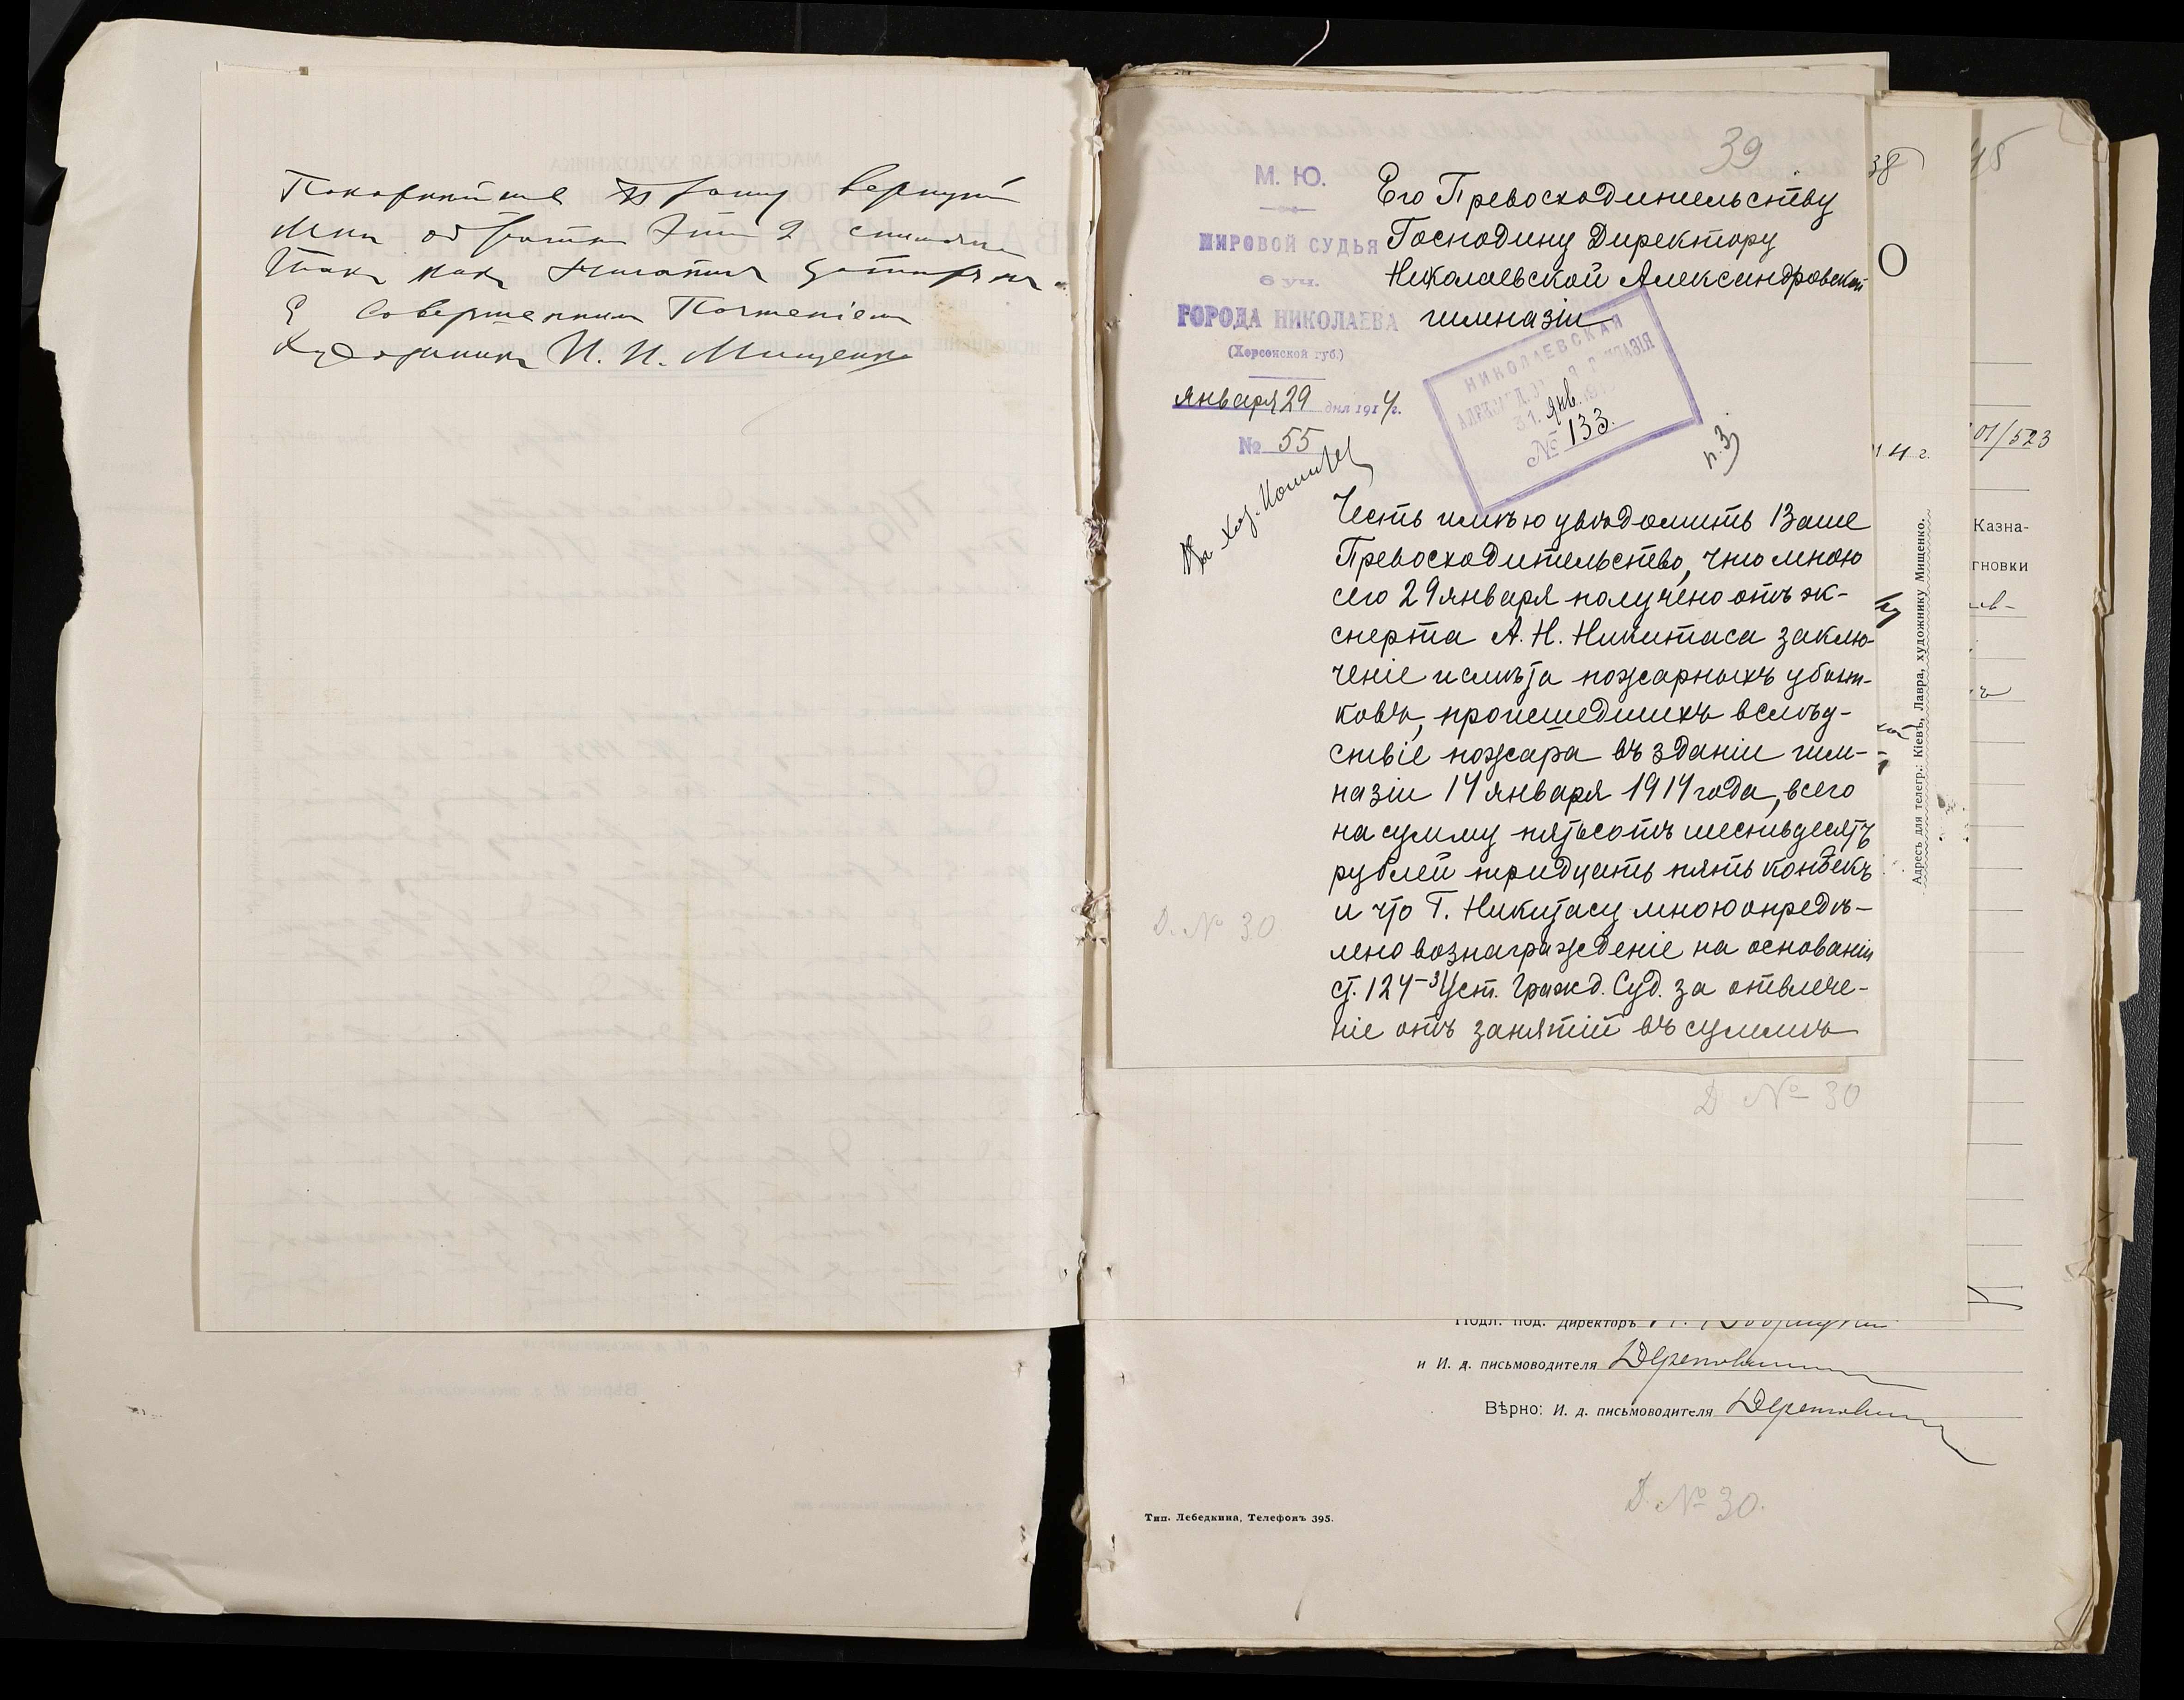 Покорнѣйше прошу вернуть
мнѣ обратно эти 2 снимка
такъ какъ
Съ совершеннымъ Почтеніемъ
Художникъ И. И. Мищенко
39
М. Ю.
МИРОВОЙ СУДЬЯ
6 уч.
ГОРОДА НИКОЛАЕВА
(Херсонской губ.)
Января 29 дня 1914 г.
№ 55
Его Превосходительству
Господину Директору
Николаевской Александровской
гимназіи
НИКОЛАЕВСКАЯ
АЛЕКСАНД ГИМНАЗІЯ
31. Янв. 191
№ 133.
п. 3)
На Хоз. Комитет
Честь имѣю увѣдомить Ваше
Превосходительство, что мною
сего 29 января получено отъ эк-
сперта А. Н. Никитаса заклю-
ченіе и смѣта пожарныхъ убыт-
ковъ, происшедшихъ вслѣд-
ствіе пожара въ зданіи гим-
назіи 14 января 1914 года, всего
на сумму пятьсотъ шестьдесятъ
рублей тридцать пять копѣекъ
и что Г. Никитасу мною опредѣ-
лено вознагражденіе на основаніи
ст. 124-3 Уст. Гражд. Суд. за отвлече-
ніе отъ занятій въ суммѣ
Д. № 30
38
О
4 г.
Адресъ для телегр.: Кіевъ, Лавра, художнику Мищенко.
45
01/523
Казна-
тновки
Д № 30
Подл. под. Директоръ
и И. д. письмоводителя
Вѣрно: И. д. письмоводителя
Д. № 30.
Тип. Лебедкина, Телефонъ 395.